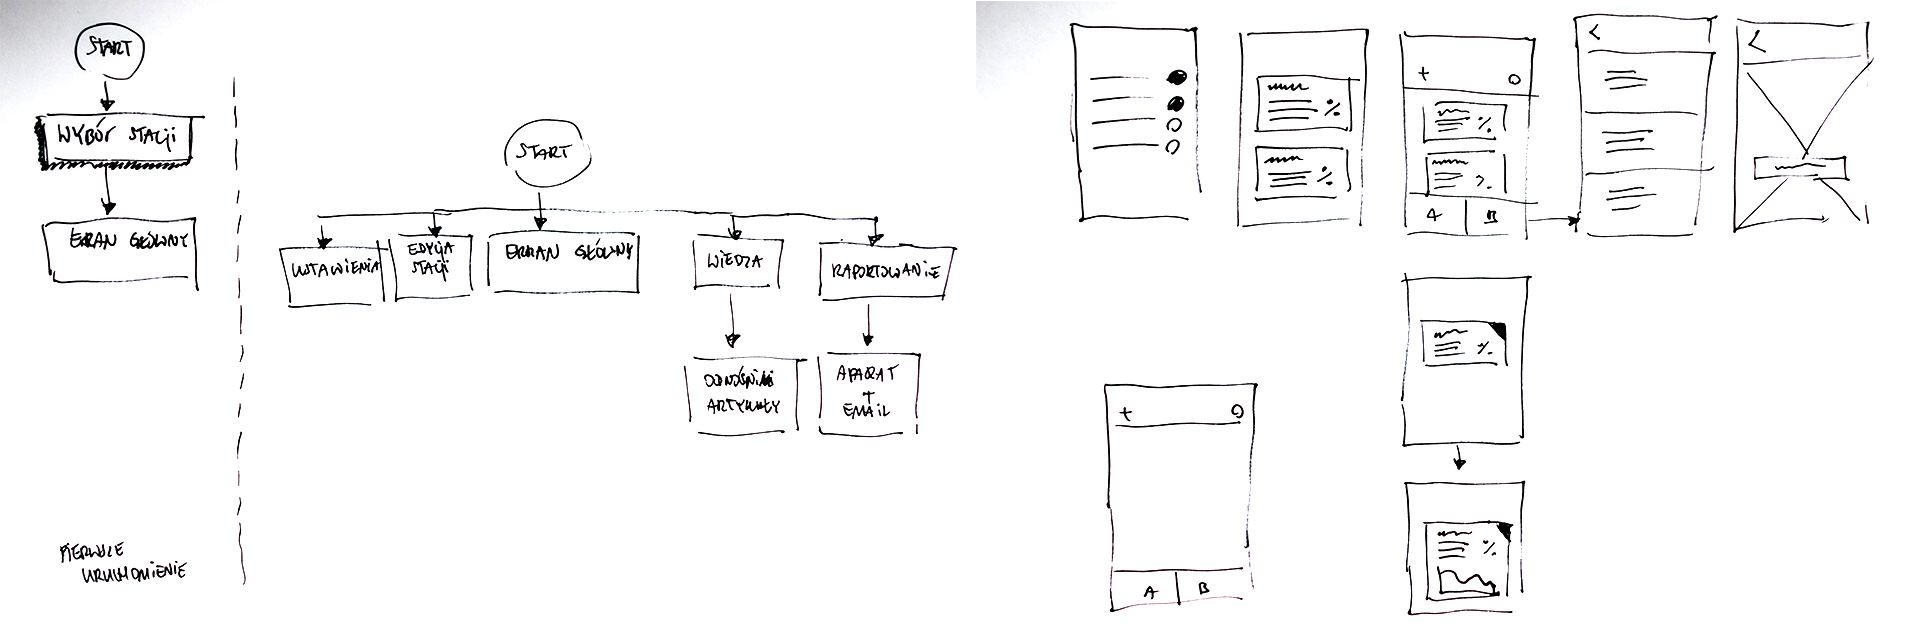 START
WYBÓR STACJI
EKRAN GŁÓWNY
PIERWSZE
URUCHOMIENIE
START
USTAWIENIA
EDYCJA
STACJI
EKRAN GŁÓWNY
WIEDZA
RAPORTOWANIE
ODNOŚNIKI
ARTYKUŁY
APARAT
+
EMAIL
%
%
+
%
%
A B
<
<
%
%
+
A B